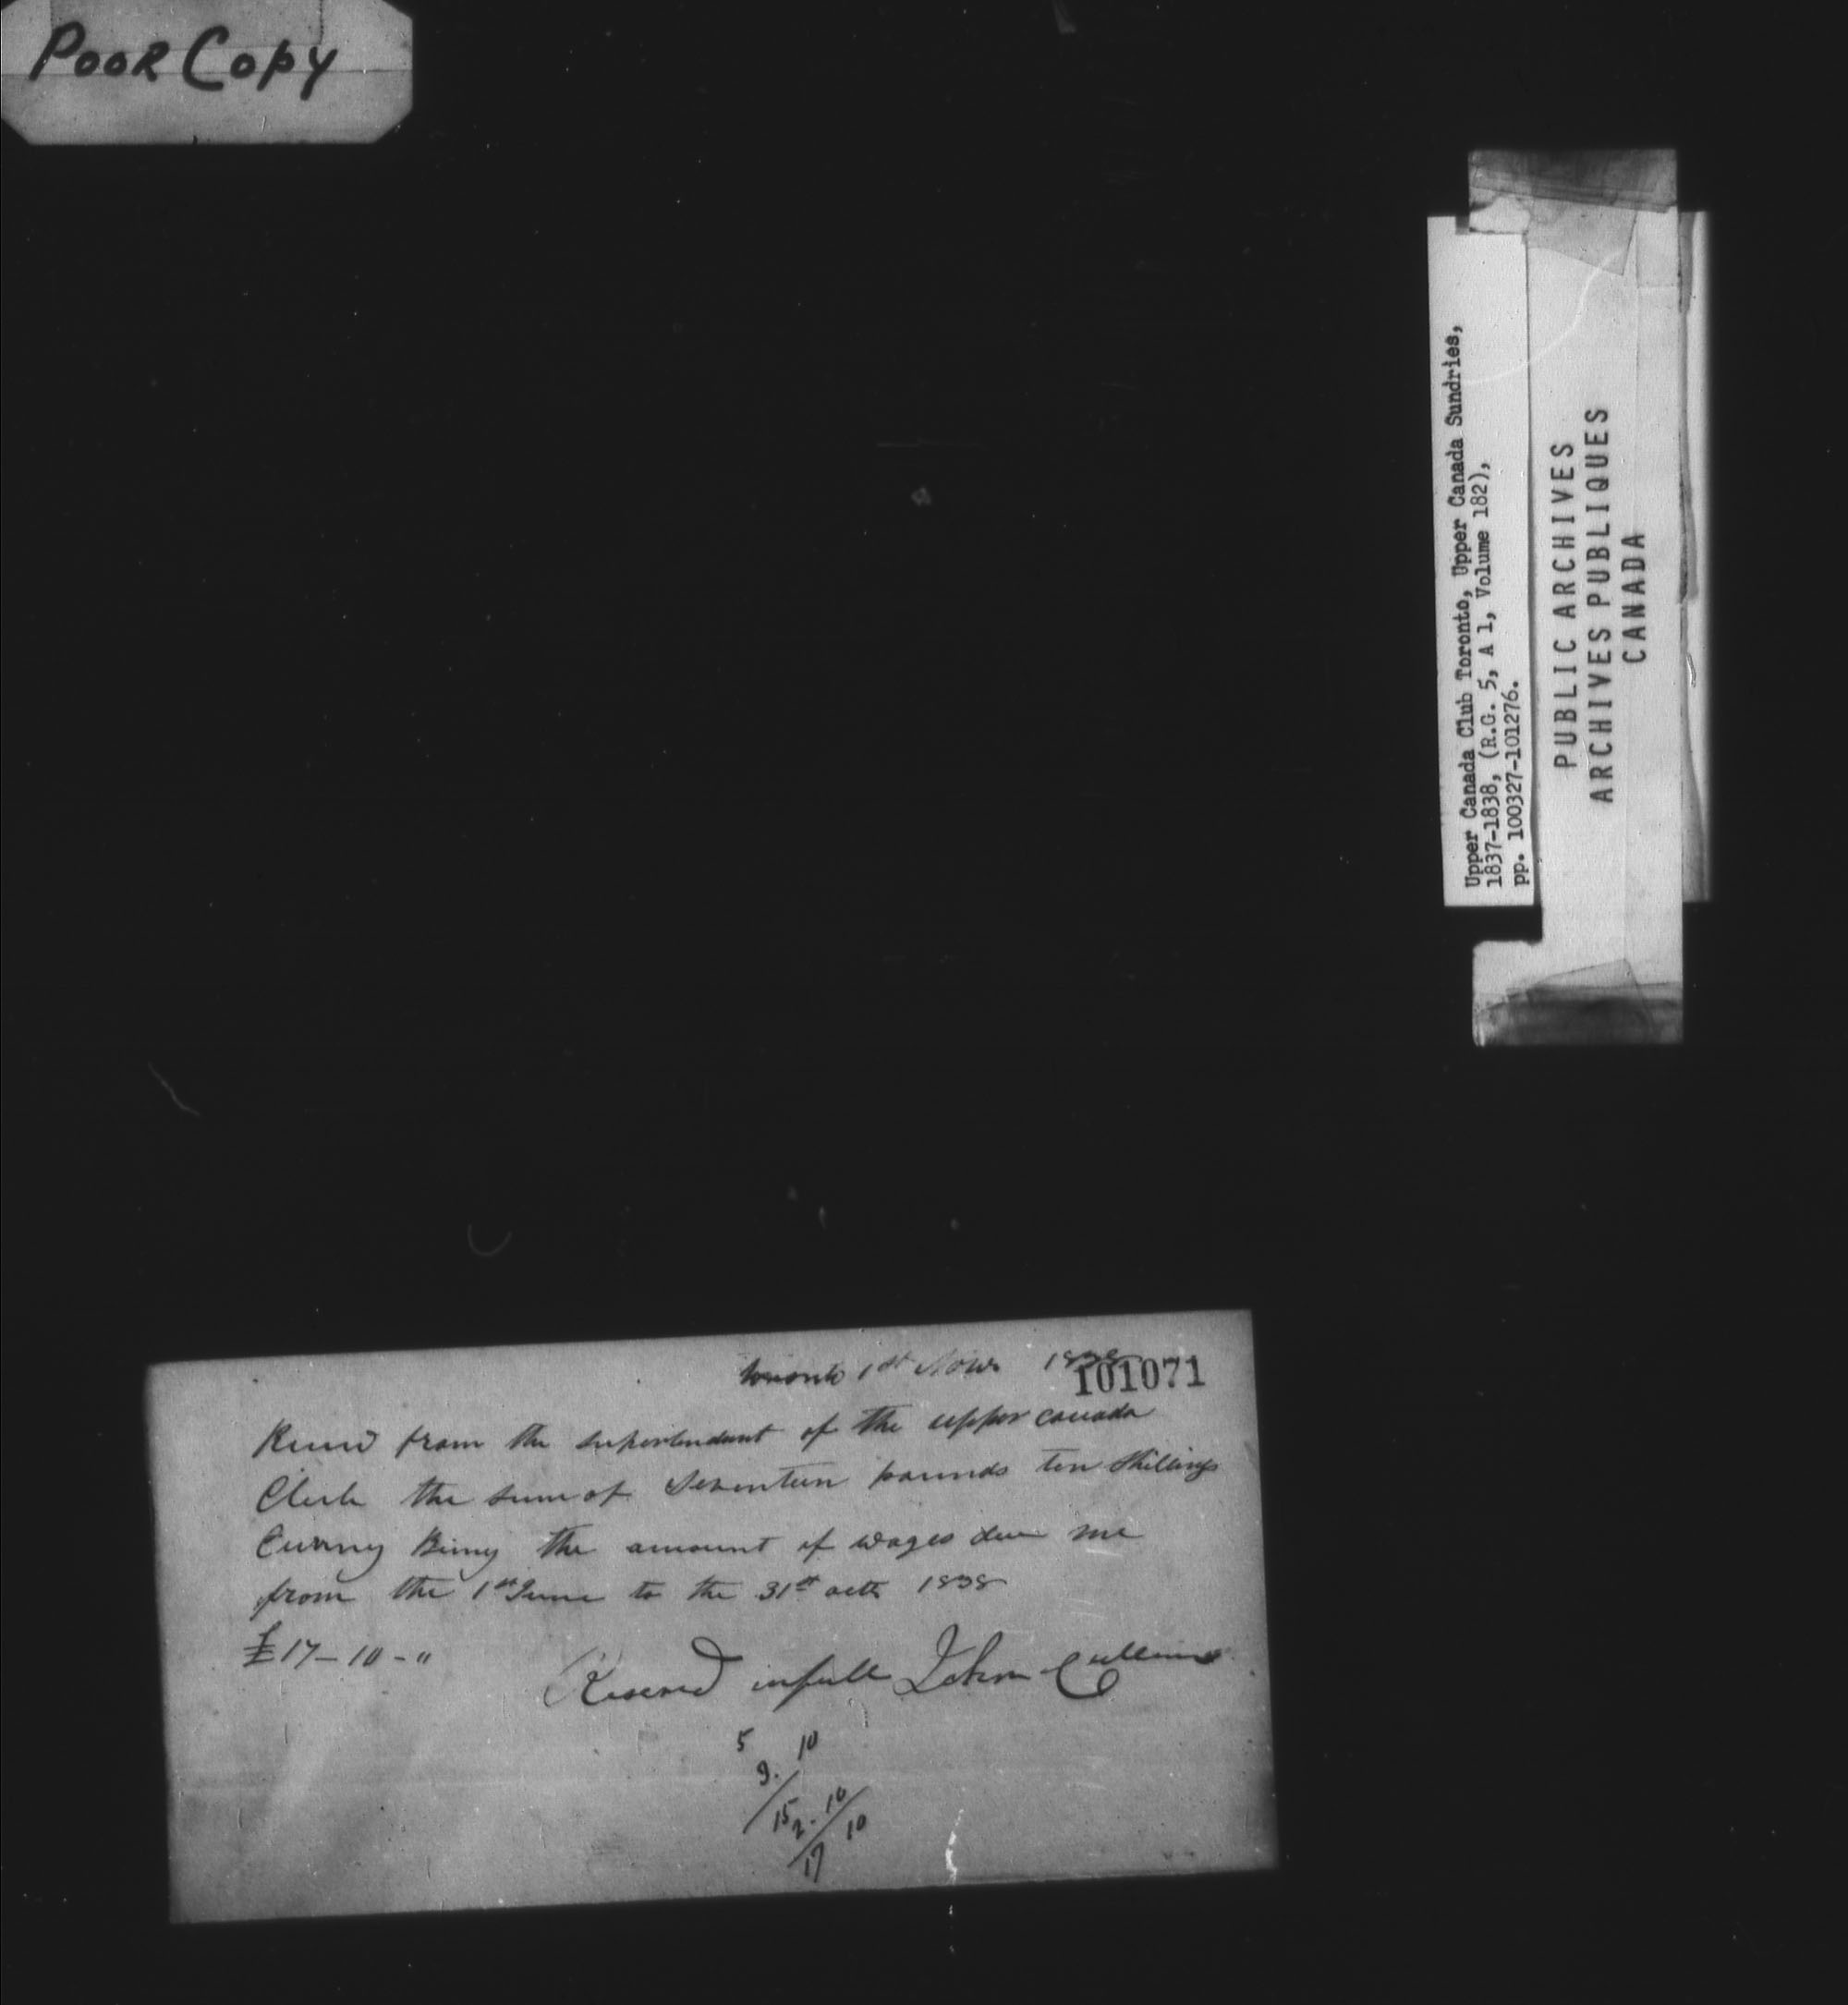 Poor Copy
Upper Canada Club Toronto, Upper Canada Sundries,
1837-1838, (R.G. 5, A 1, Volume 182),
pp. 100327-101276.
PUBLIC ARCHIVES
ARCHIVES PUBLIQUES
CANADA
toronto 1st Novr 1838
101071
from the superlendant of the upper canada
Club the sum of Seventeen pounds ten Shillings
the amount of wages due me
from the 1st June to the 31st octr 1838
£17-10-"
Reseved in full John Cullens
5 10
9.
15 10
2. 10
17